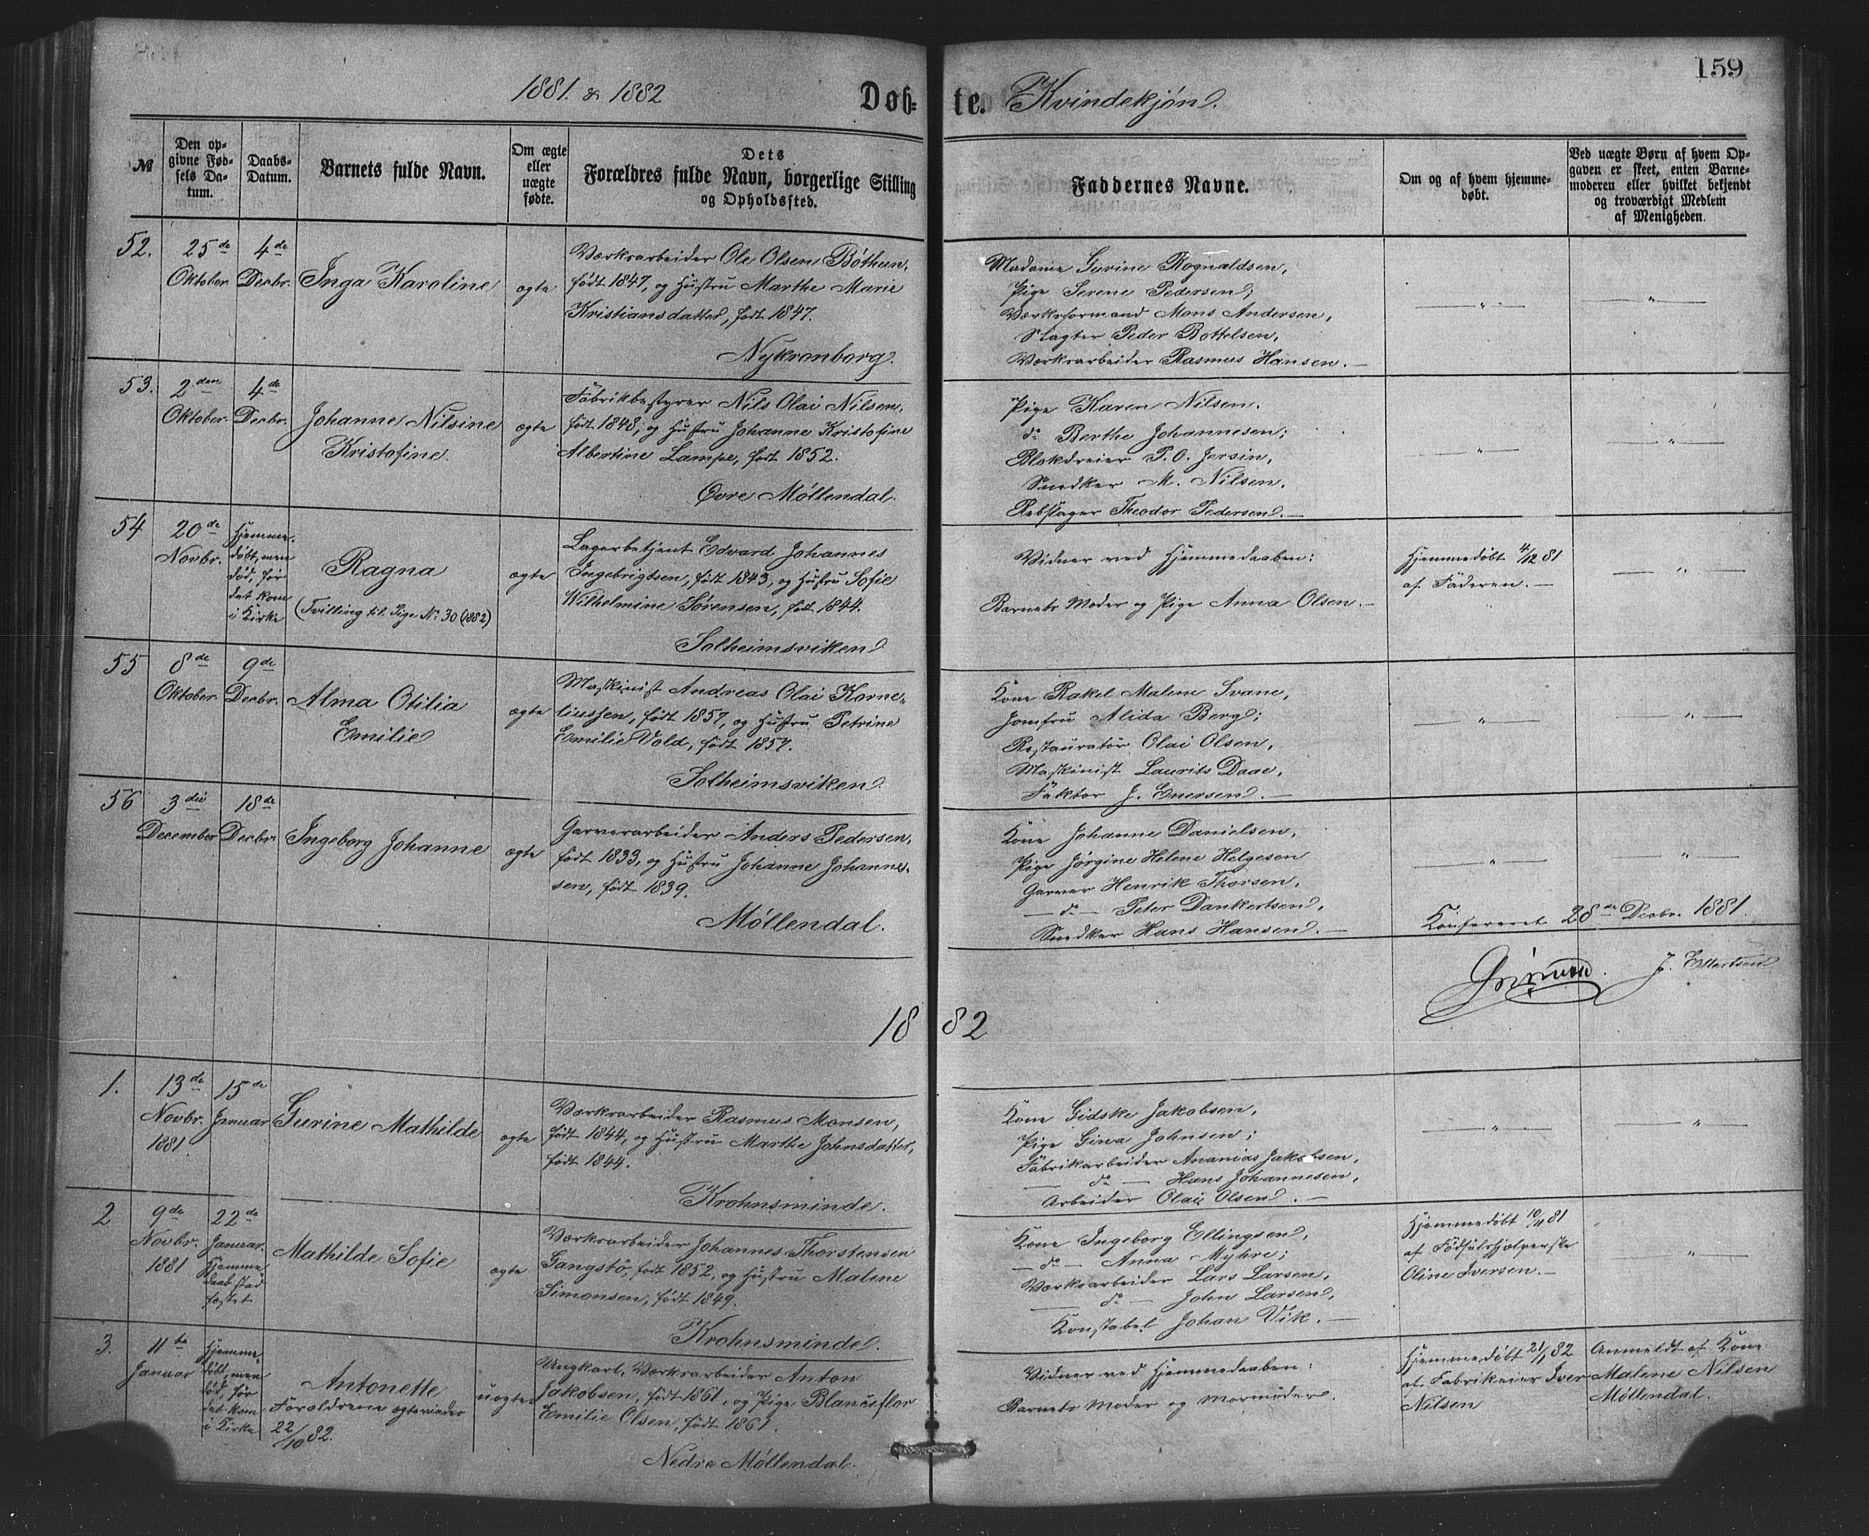 159
1881. & 1882
Døb-
te. Kvindekjøn.
№
Den op-
givne Fød-
sels Da-
tum.
Daabs-
Datum.
Barnets fulde Navn.
Om ægte
eller
uægte
fødte.
Dets
Forældres fulde Navn, borgerlige Stilling
og Opholdssted.
Faddernes Navne.
Om og af hvem hjemme-
døbt.
Ved uægte Børn af hvem Op-
gaven er skeet, enten Barne-
moderen eller hvilket bekjendt
og troværdigt Medlem
af Menigheden.
52.
25de
Oktober.
4de
Decbr.
Inga Karoline
ægte
Værksarbeider Ole Olsen Bøthun,
født 1847, og Hustru Marthe Marie
Kristiansdatter, født 1847.
Nykronborg.
Madame Gurine Rognaldsen,
Pige Serene Pedersen;
Værksformand Mons Andersen,
Slagter Peder Bottelsen,
Værksarbeider Rasmus Hansen. —
— " —
— " —
53.
2den
Oktober.
4de
Decbr.
Johanne Nilsine
Kristofine.
ægte
Fabrikbestyrer Nils Olai Nilsen,
født 1848, og Hustru Johanne Kristofine
Albertine Lampe, født 1852.
Øvre Møllendal.
Pige Karen Nilsen.
do Berthe Johannesen;
Blokdreier P. O. Jersin,
Snedker M. Nilsen,
Rebslager Theodor Pedersen. —
— " —
— " —
54
20de
Novbr.
Hjemme-
døbt, men
død, før
det kom
i Kirke
Ragna
(Tvilling til Pige No 30 (1882)
ægte
Lagerbetjent Edvard Johannes
Ingebrigtsen, født 1843, og Hustru Sofie
Wilhelmine Sørensen, født 1844.
Solheimsviken
Vidner ved Hjemmedaaben:
Barnets Moder og Pige Anna Olsen. —
Hjemmedøbt 4/12 81
af Faderen. —
— " —
55
8de
Oktober.
9de
Decbr.
Alma Otilia
Emilie
ægte
Maskinist Andreas Olai Korne-
liussen, født 1857, og Hustru Petrine
Emilie Vold, født 1857.
Solheimsviken.
Kone Rakel Malene Svane,
Jomfru Alida Berg;
Restauratør Olai Olsen,
Maskinist Laurits Daae,
Faktor J. Enersen. —
— " —
— " —
56
3die
December
18de
Decbr.
Ingeborg Johanne
ægte
Garverarbeider Anders Pedersen,
født 1833, og Hustru Johanne Johannes-
sen, født 1839.
Møllendal.
Kone Johanne Danielsen,
Pige Jørgine Helene Helgesen
Garver Henrik Thorsen,
— do — Peter Dankertsen,
Snedker Hans Hansen. —
— " —
— " —
Konfereret 28de Decbr. 1881.
J. Ellertsen
1882
1.
13de
Novbr.
1881
15de
Januar
Gurine Mathilde
ægte
Værksarbeider Rasmus Monsen,
født 1844, og Hustru Marthe Johnsdatter,
født 1844.
Krohnsminde.
Kone Gidske Jakobsen,
Pige Gina Johnsen;
Fabrikarbeider Ananias Jakobsen,
— do — Hans Johannesen,
Arbeider Olaii Olsen. —
— " —
— " —
2
9de
Novbr.
1881
22de
Januar.
Hjemme
daab stad
fæstet
Mathilde Sofie
ægte
Værksarbeider Johannes Thorstensen
Gangstø, født 1852, og Hustru Malene
Simonsen, født 1849.
Krohnsminde.
Kone Ingeborg Ellingsen,
— do — Anna Myhre;
Værksarbeider Lars Larsen,
— do — John Larsen,
Konstabel Johan Vik. —
Hjemmedøbt 10/11 81
af Fødselshjælperske
Oline Iversen. —
— " —
3.
11te
Januar
Hjemme-
døbt, men
død, før
det kom
i Kirke
Antonette
Forældrene ægtevieder
22/10 82.
uægte
Ungkarl, Værksarbeider Anton
Jakobsen, født 1861, og Pige Blanceflor
Emilie Olsen, født 1861.
Nedre Møllendal.
Vidner ved Hjemmedaaben:
Barnets Moder og Mormoder.
Hjemmedøbt 21/1 82
af Fabrikeier Iver
Nilsen
Anmeldt af Kone
Malene Nilsen
Møllendal.